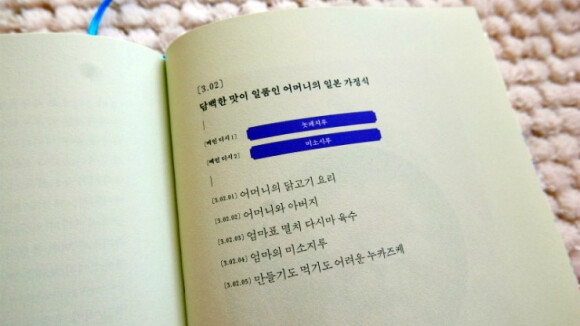 [3.02]
담백한 맛이 일품인 어머니의 일본 가정식
[메인 디시 1] 놋페지루
[메인 디시 2] 미소시루
[3.02.01] 어머니의 닭고기 요리
[3.02.02] 어머니와 아버지
[3.02.03] 엄마표 멸치 다시마 육수
[3.02.04] 엄마의 미소지루
[3.02.05] 만들기도 먹기도 어려운 누카즈케